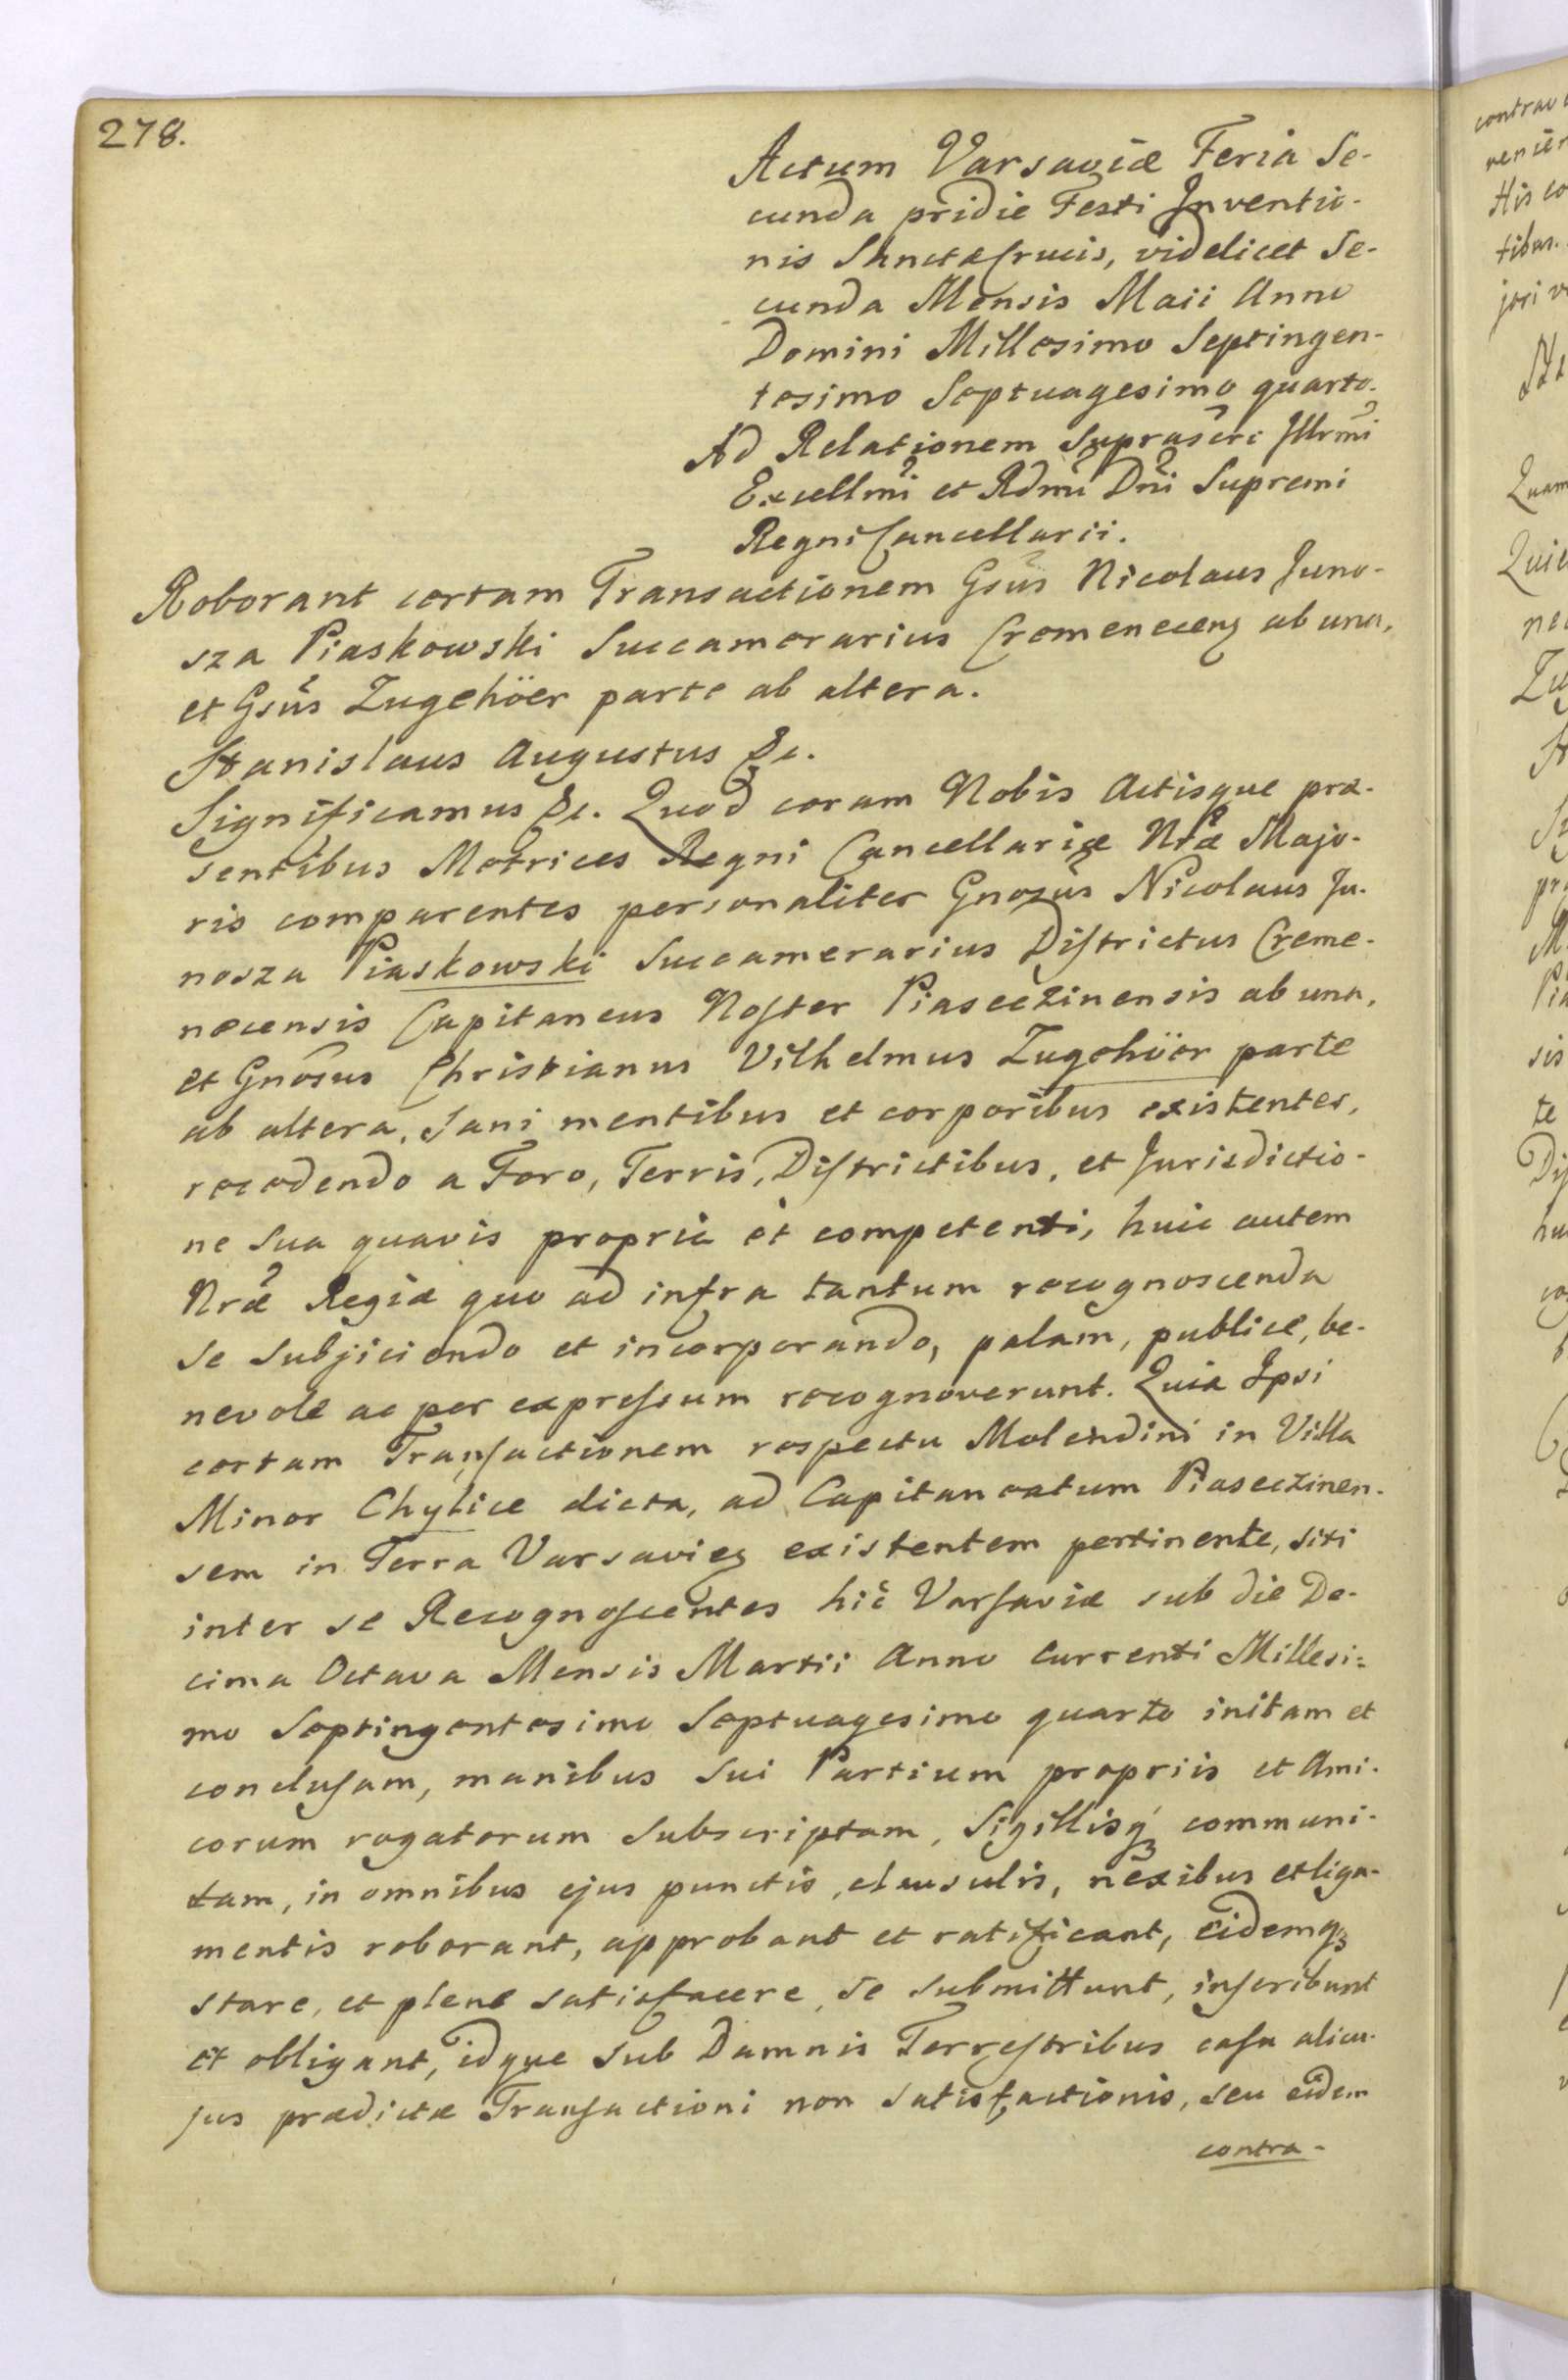 278.
Actum Varsaviæ Feria Se-
cunda pridie Festi Inventio-
nis Sanctæ Crucis, videlicet Se-
cunda Mensis Maii Anno
Domini Millesimo Septingen-
tesimo Septuagesimo quarto.
Ad Relationem Suprascri Illrmi
Excellmi et Rdmi Dni Supremi
Regni Cancellarii.
Roborant certam Transactionem Gsus Nicolaus Juno-
sza Piaskowski Succamerarius Cremeneceng ab una,
et Gsus Zugehöer parte ab altera.
Stanislaus Augustus &c.
Significamus &c. Quod coram Nobis Actisque præ-
sentibus Metrices Regni Cancellariæ Nræ Majo-
ris comparentes personaliter Gnosus Nicolaus Ju-
nosza Piaskowski Succamerarius Districtus Creme-
necensis Capitaneus Noster Piaseczinensis ab una,
et Gnosus Christianus Vilhelmus Zugehöer parte
ab altera, sani mentibus et corporibus existentes,
recedendo a Foro, Terris, Districtibus, et Jurisdictio-
ne sua quavis propria et competenti, huic autem
Nræ Regiæ quo ad infra tantum recognoscenda
se subjiciendo et incorporando, palam, publice, be-
nevole ac per expressum recognoverunt. Quia Ipsi
certam Transactionem respectu Molendini in Villa
Minor Chylice dicta, ad Capitaneatum Piaseczinen-
sem in Terra Varsavieg existentem pertinente, siti
inter se Recognoscentes hic Varsaviæ sub die De-
cima Octava Mensis Martii Anno Currenti Millesi=
mo Septingentesimo Septuagesimo quarto initam et
conclusam, manibus sui Partium propriis et Ami-
corum rogatorum subscriptam, Sigillisq3 communi-
tam, in omnibus ejus punctis, clausulis, nexibus et liga-
mentis roborant, approbant et ratificant, eidemq3
stare, et plene satisfacere, se submittunt, inscribunt
et obligant, idque sub Damnis Terrestribus casu alicu-
jus prædictæ Transactioni non satisfactionis, seu eidem
contra-